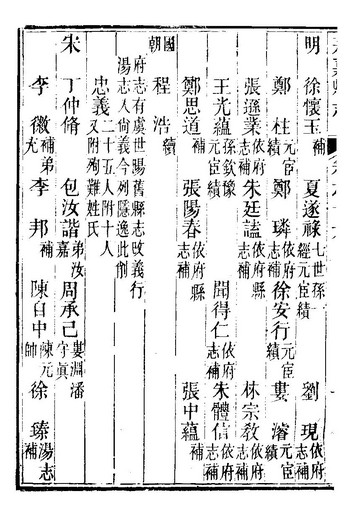 明 徐懷玉補 夏遂祿七世孫經元宦績 劉現依府志補
鄭柱元宦績 鄭璘依府志補 徐安行元宦績 婁濬元宦績
張遜業依府志補 朱廷謐依府縣志補 林宗教依府志補
王光蘊孫欽豫宦績 聞得仁依府志補 朱體信依府志補
鄭思道補 張陽春依府縣志補 張中蘊依府志補
國朝 程浩續
府志有虞世暘舊縣志改義行
湯志人尚義今列隱逸此倒
忠義二十五人附十人又附殉難姓氏
宋 丁仲脩 包汝諧弟汝嘉 周承己婁淵潘守真
李徽補弟光 李邦補 陳自中陳元帥 徐臻湯志補